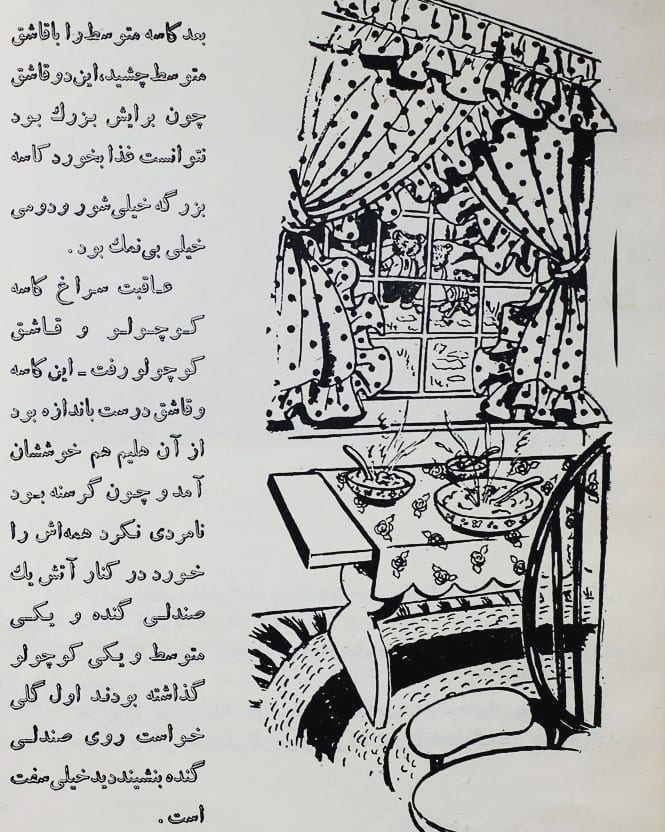 بعد کاسه متوسط را با قاشق
متوسط چشید، این دو قاشق
چون برایش بزرگ بود
نتوانست غذا بخورد کاسه
بزرگه خیلی شور و دومی
خیلی بی‌نمک بود.
عاقبت سراغ کاسه
کوچولو و قاشق
کوچولو رفت ـ این کاسه
و قاشق درست باندازه بود
از آن هلیم هم خوششان
آمد و چون گرسنه بود
نامردی نکرد همه‌اش را
خورد در کنار آتش یك
صندلی گنده و یکی
متوسط و یکی کوچولو
گذاشته بودند اول گلی
خواست روی صندلی
گنده بنشیند دید خیلی سفت
است.